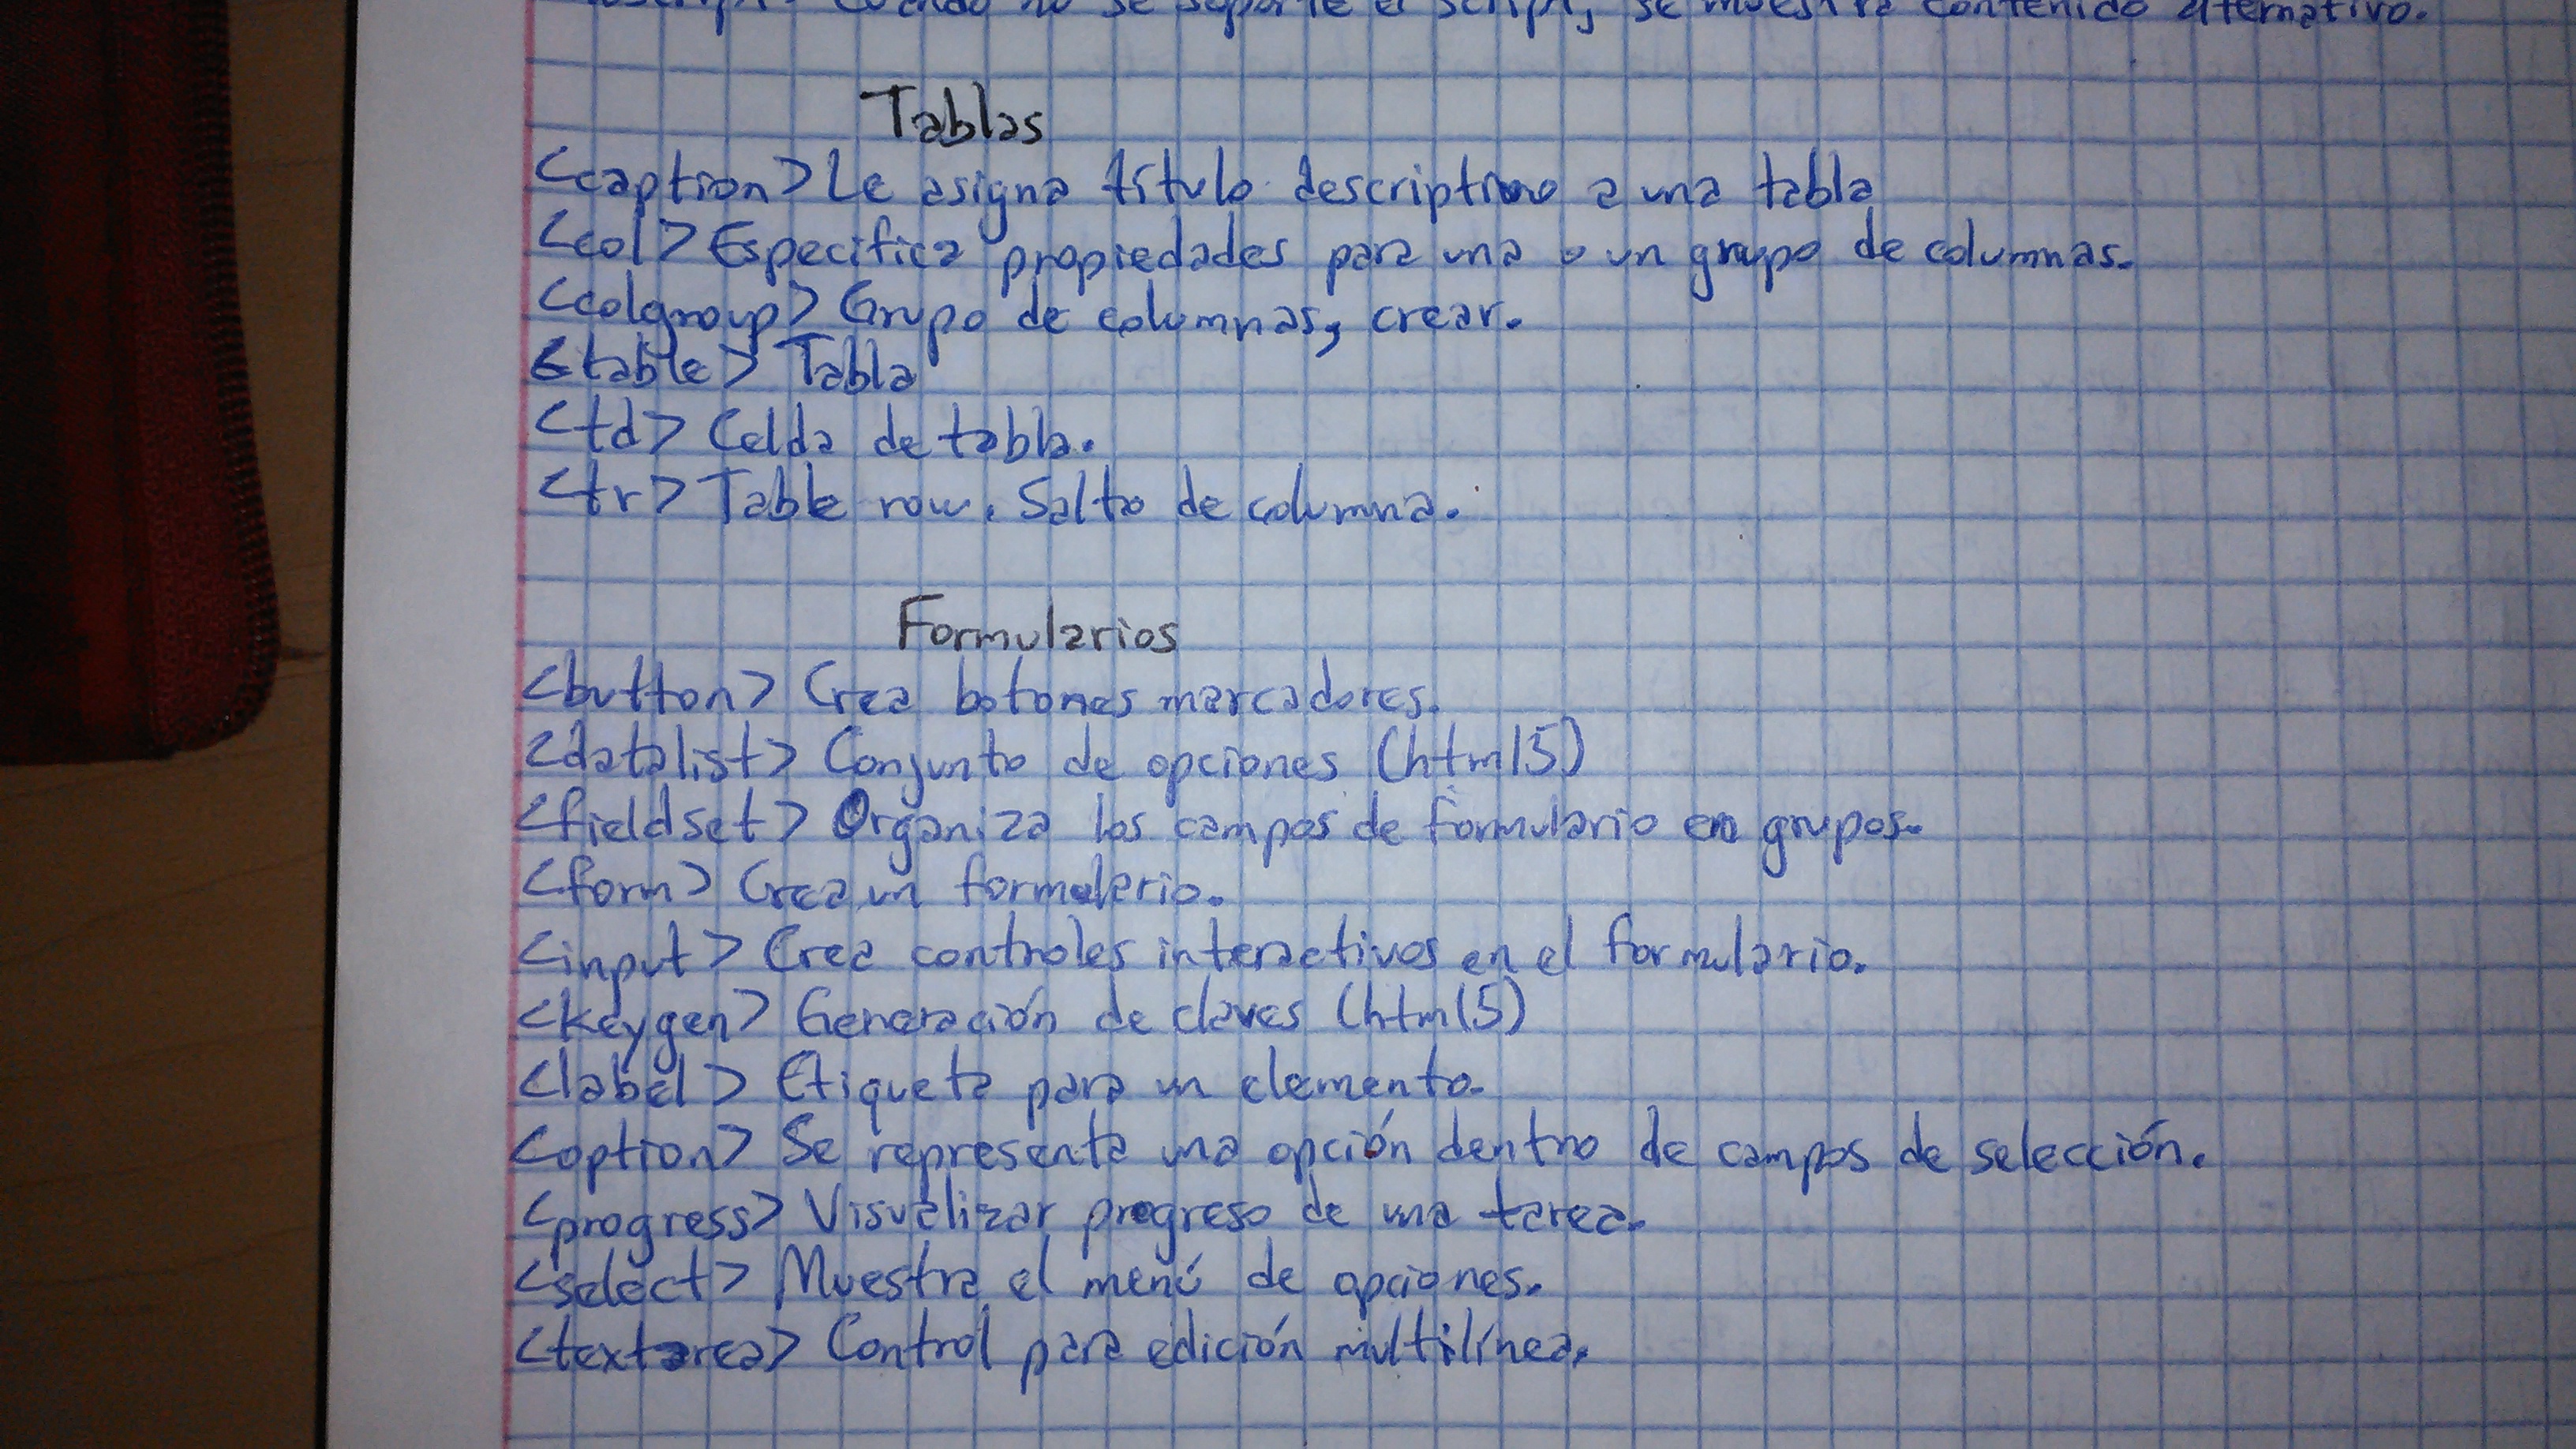 Cuando no se soporte el script, se muestra contenido alternativo.
Tablas
<caption> Le asigna título descriptivo a una tabla
<col> Especifica propiedades para una o un grupo de columnas.
<colgroup> Grupo de columnas, crear.
<table> Tabla
<td> Celda de tabla.
<tr> Table row. Salto de columna.
Formularios
<button> Crea botones marcadores.
<datalist> Conjunto de opciones (html5)
<fieldset> Organiza los campos de formulario en grupos.
<form> Crea un formulario.
<input> Crea controles interactivos en el formulario.
<keygen> Generación de claves (html5)
<label> Etiqueta para un elemento.
<option> Se representa una opción dentro de campos de selección.
<progress> Visualizar progreso de una tarea.
<select> Muestra el menú de opciones.
<textarea> Control para edición multilínea.